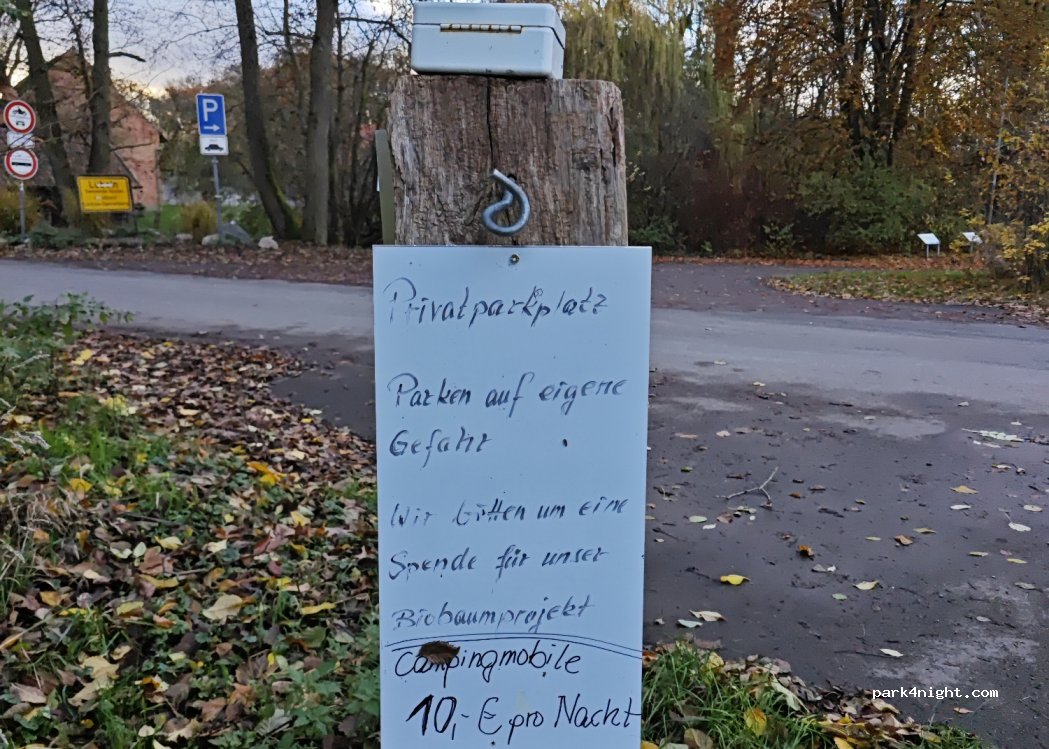 P
Privatparkplatz
Parken auf eigene
Gefahr
Wir bitten um eine
Spende für unser
Biobaumprojekt
Campingmobile
10,- € pro Nacht
park4night.com